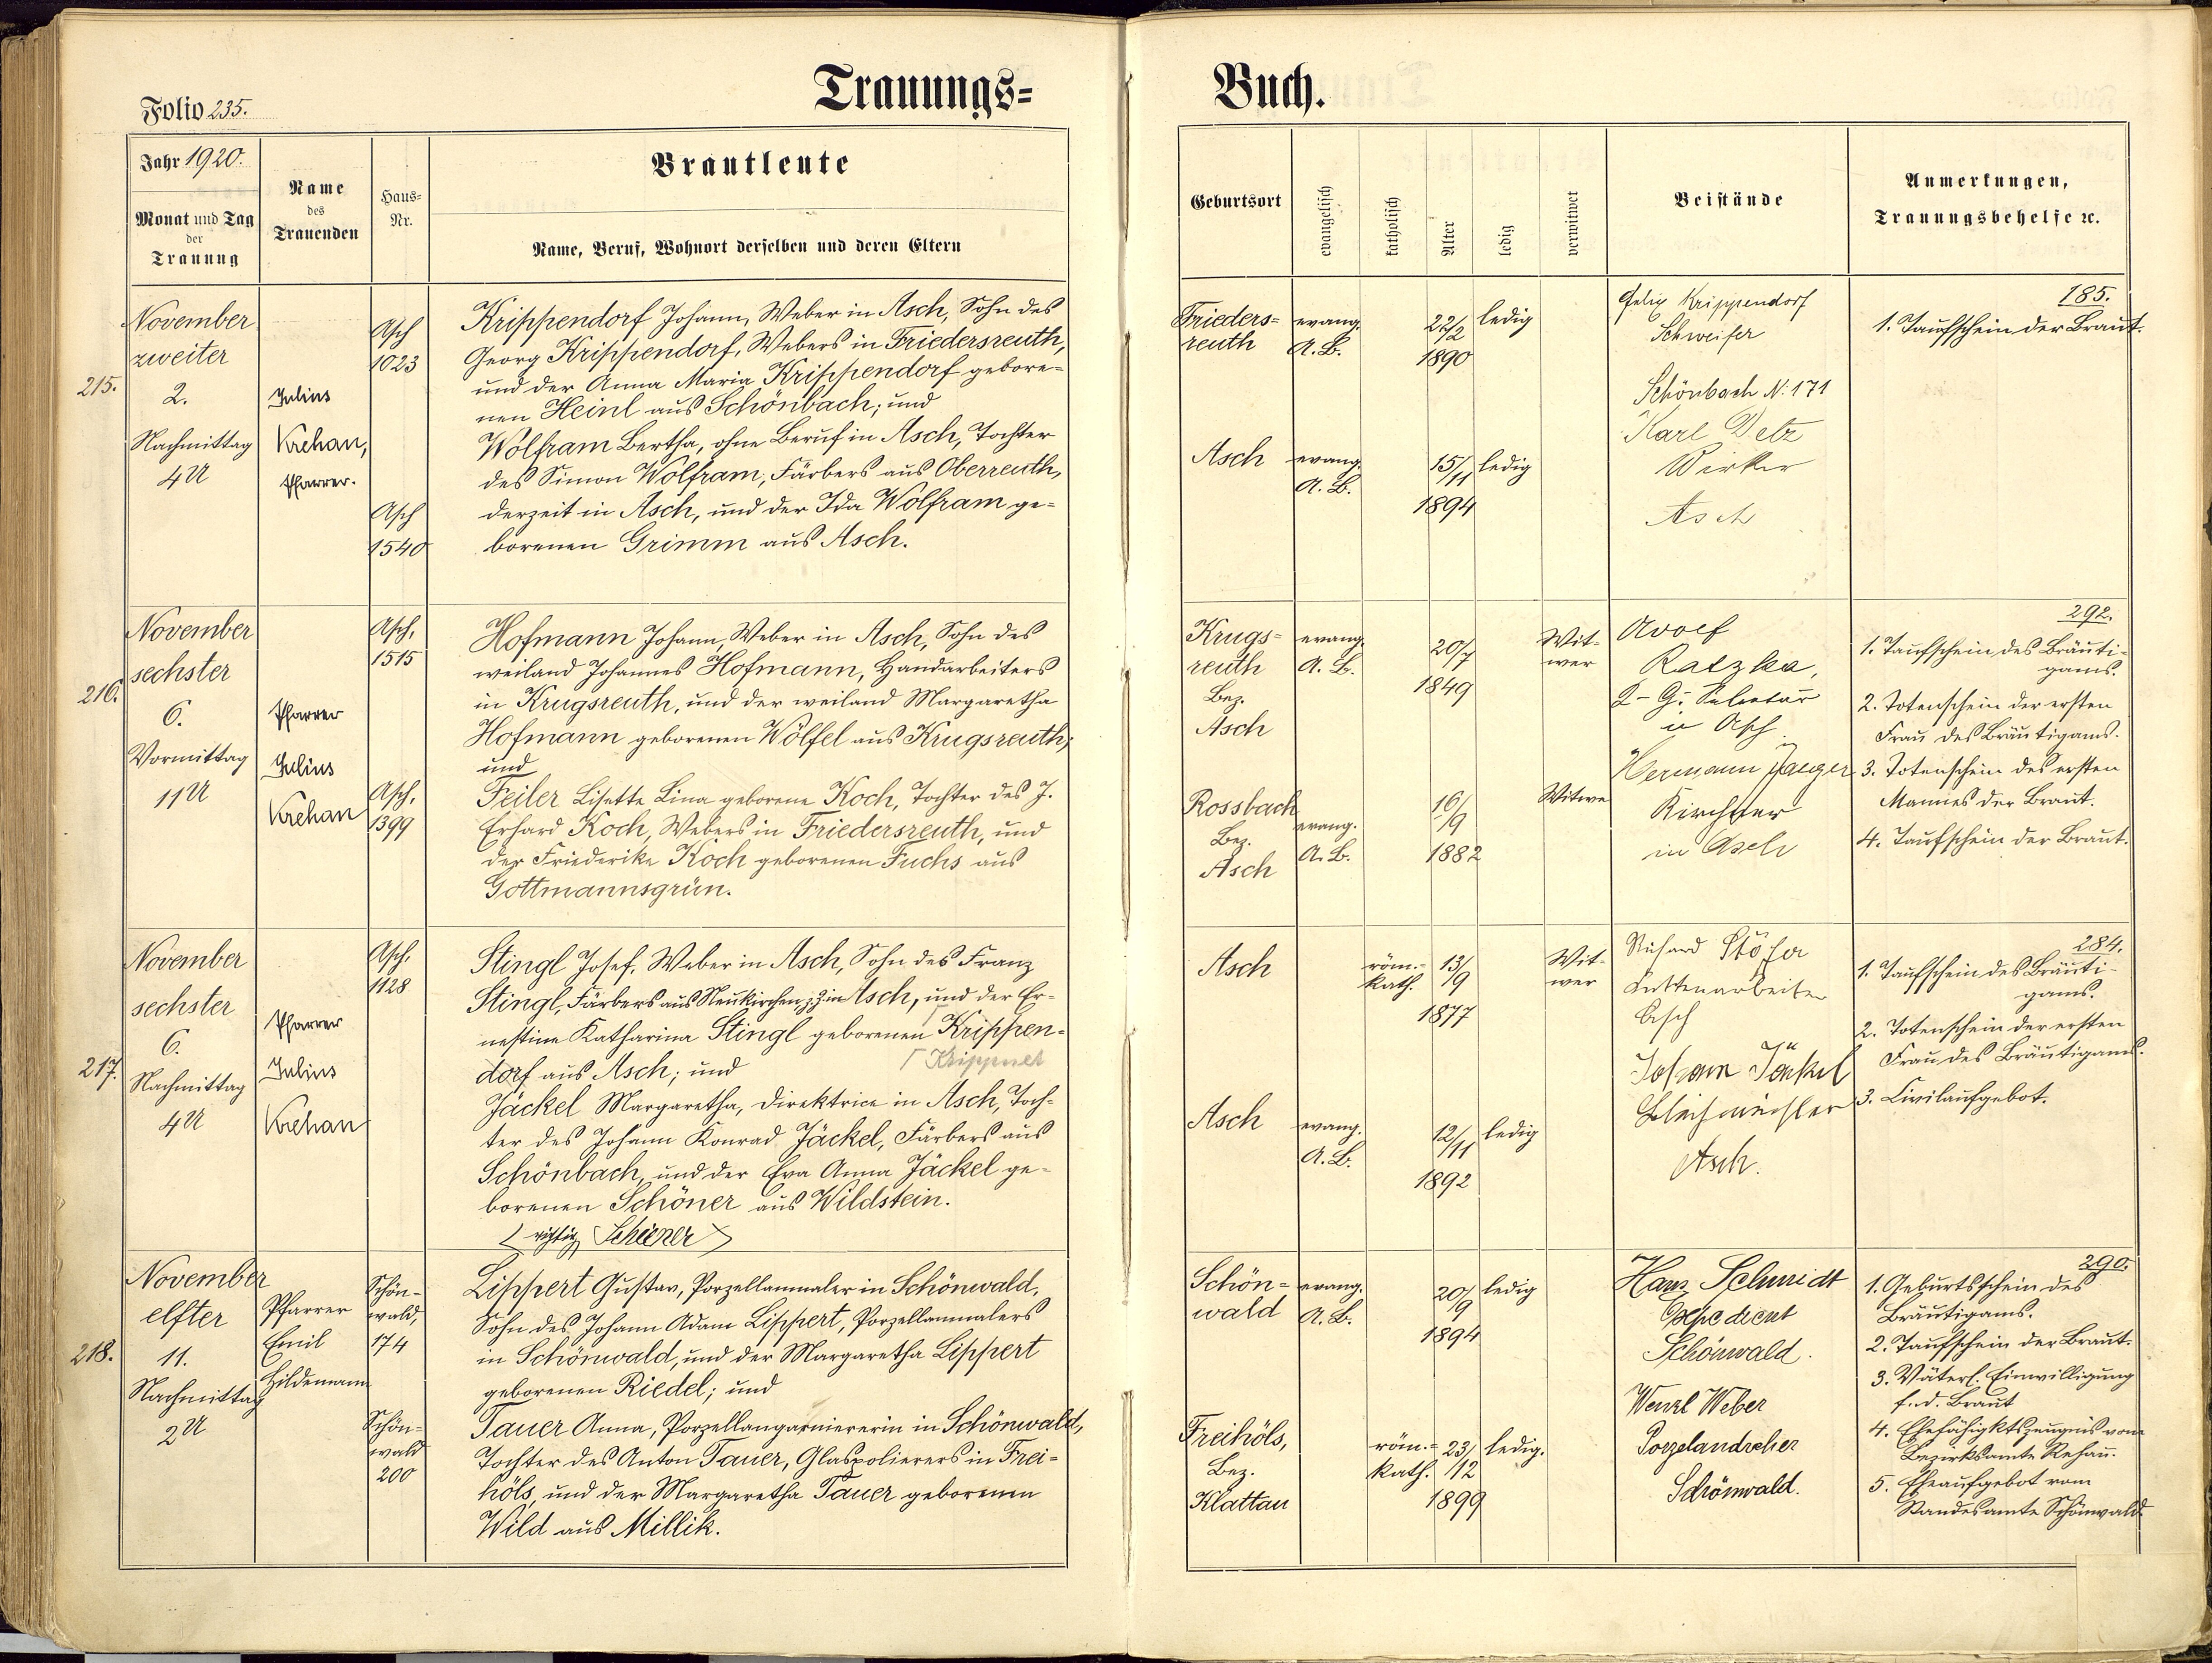 Trauungs=
Buch.
Folio 235.
Jahr 1920.
Monat und Tag
der
Trauung
Name
des
Trauenden
Haus=
Nr.
Brautleute
Name, Beruf, Wohnort derselben und deren Eltern
Geburtsort
evangelisch
katholisch
Alter
ledig
verwitwet
Beistände
Anmerkungen,
Trauungsbehelfe ꝛc.
215.
November
zweiter
2.
Nachmittag
4 U
Julius
Krehan,
Pfarrer.
Asch
1023
Asch
1540
Krippendorf Johann, Weber in Asch, Sohn des
Georg Krippendorf, Webers in Friedersreuth,
und der Anna Maria Krippendorf gebore=
nen Heinl aus Schönbach; und
Wolfram Bertha, ohne Beruf in Asch, Tochter
des Simon Wolfram, Färbers aus Oberreuth,
derzeit in Asch, und der Ida Wolfram ge=
borenen Grimm aus Asch.
Frieders=
reuth
evang.
A. B.
22/2
1890
ledig
Asch
evang.
A. B.
15/11
1894
ledig
Krippendorf
Schweifer
Schönbach N: 171
Karl
Wirker
Asch
185.
1. Taufschein der Braut.
216.
November
sechster
6.
Vormittag
11 U
Pfarrer
Julius
Krehan
Asch,
1515
Asch,
1399
Hofmann Johann, Weber in Asch, Sohn des
weiland Johannes Hofmann, Handarbeiters
in Krugsreuth, und der weiland Margaretha
Hofmann geborenen Wölfel aus Krugsreuth;
und
Feiler Lisette Lina geborene Koch, Tochter des J.
Erhard Koch, Webers in Friedersreuth, und
der Friederike Koch geborenen Fuchs aus
Gottmannsgrün.
Krugs=
reuth
Bez.
Asch
evang.
A. B.
20/7
1849
Wit=
wer
Rossbach
Bez.
Asch
evang.
A. B.
16/9
1882
Witwe
Adolf
Ratzka,
in Asch
Hermann Jaeger
Kirchner
in Asch
292.
1. Taufschein des Bräuti=
gams.
2. Totenschein der ersten
Frau des Bräutigams.
3. Totenschein des ersten
Mannes der Braut.
4. Taufschein der Braut.
217.
November
sechster
6.
Nachmittag
4 U
Pfarrer
Julius
Krehan
Asch,
1128
Stingl Josef, Weber in Asch, Sohn des Franz
Stingl, Färbers aus Neukirchen, z. Z. in Asch, und der Er=
nestine Katharina Stingl geborenen Krippen=
Krippner
dorf aus Asch; und
Jäckel Margaretha, Direktrice in Asch, Toch=
ter des Johann Konrad Jäckel, Färbers aus
Schönbach, und der Eva Anna Jäckel ge=
borenen Schöner aus Wildstein.
< richtig Schiener >
Asch
röm.=
kath.
13/9
1877
Wit=
wer
Asch
evang.
A. B.
12/11
1892
ledig
Richard
Asch
Johann Jäckel
Asch.
284.
1. Taufschein des Bräuti=
gams.
2. Totenschein der ersten
Frau des Bräutigams.
3. Civilaufgebot.
218.
November
elfter
11.
Nachmittag
2 U
Pfarrer
Emil
Hildemann
Schön=
wald,
174
Schön=
wald
200
Lippert Gustav, Porzellanmaler in Schönwald,
Sohn des Johann Adam Lippert, Porzellanmalers
in Schönwald, und der Margaretha Lippert
geborenen Riedel; und
Tauer Anna, Porzellangarniererin in Schönwald,
Tochter des Anton Tauer, Glaspolierers in Frei=
höls, und der Margaretha Tauer geborenen
Wild aus Millik.
Schön=
wald
evang.
A. B.
20/9
1894
ledig
Freihöls,
Bez.
Klattau
röm.=
kath.
23/12
1899
ledig.
Hans Schmidt
Expedient
Schönwald.
Wenzl Weber
Porzelandreher
Schönwald.
290.
1. Geburtsschein des
Bräutigams.
2. Taufschein der Braut.
3. Väterl. Einwilligung
f. d. Braut
4. Ehefähigktszeugnis vom
Bezirksamte Rehau.
5. Eheaufgebot vom
Standesamte Schönwald.